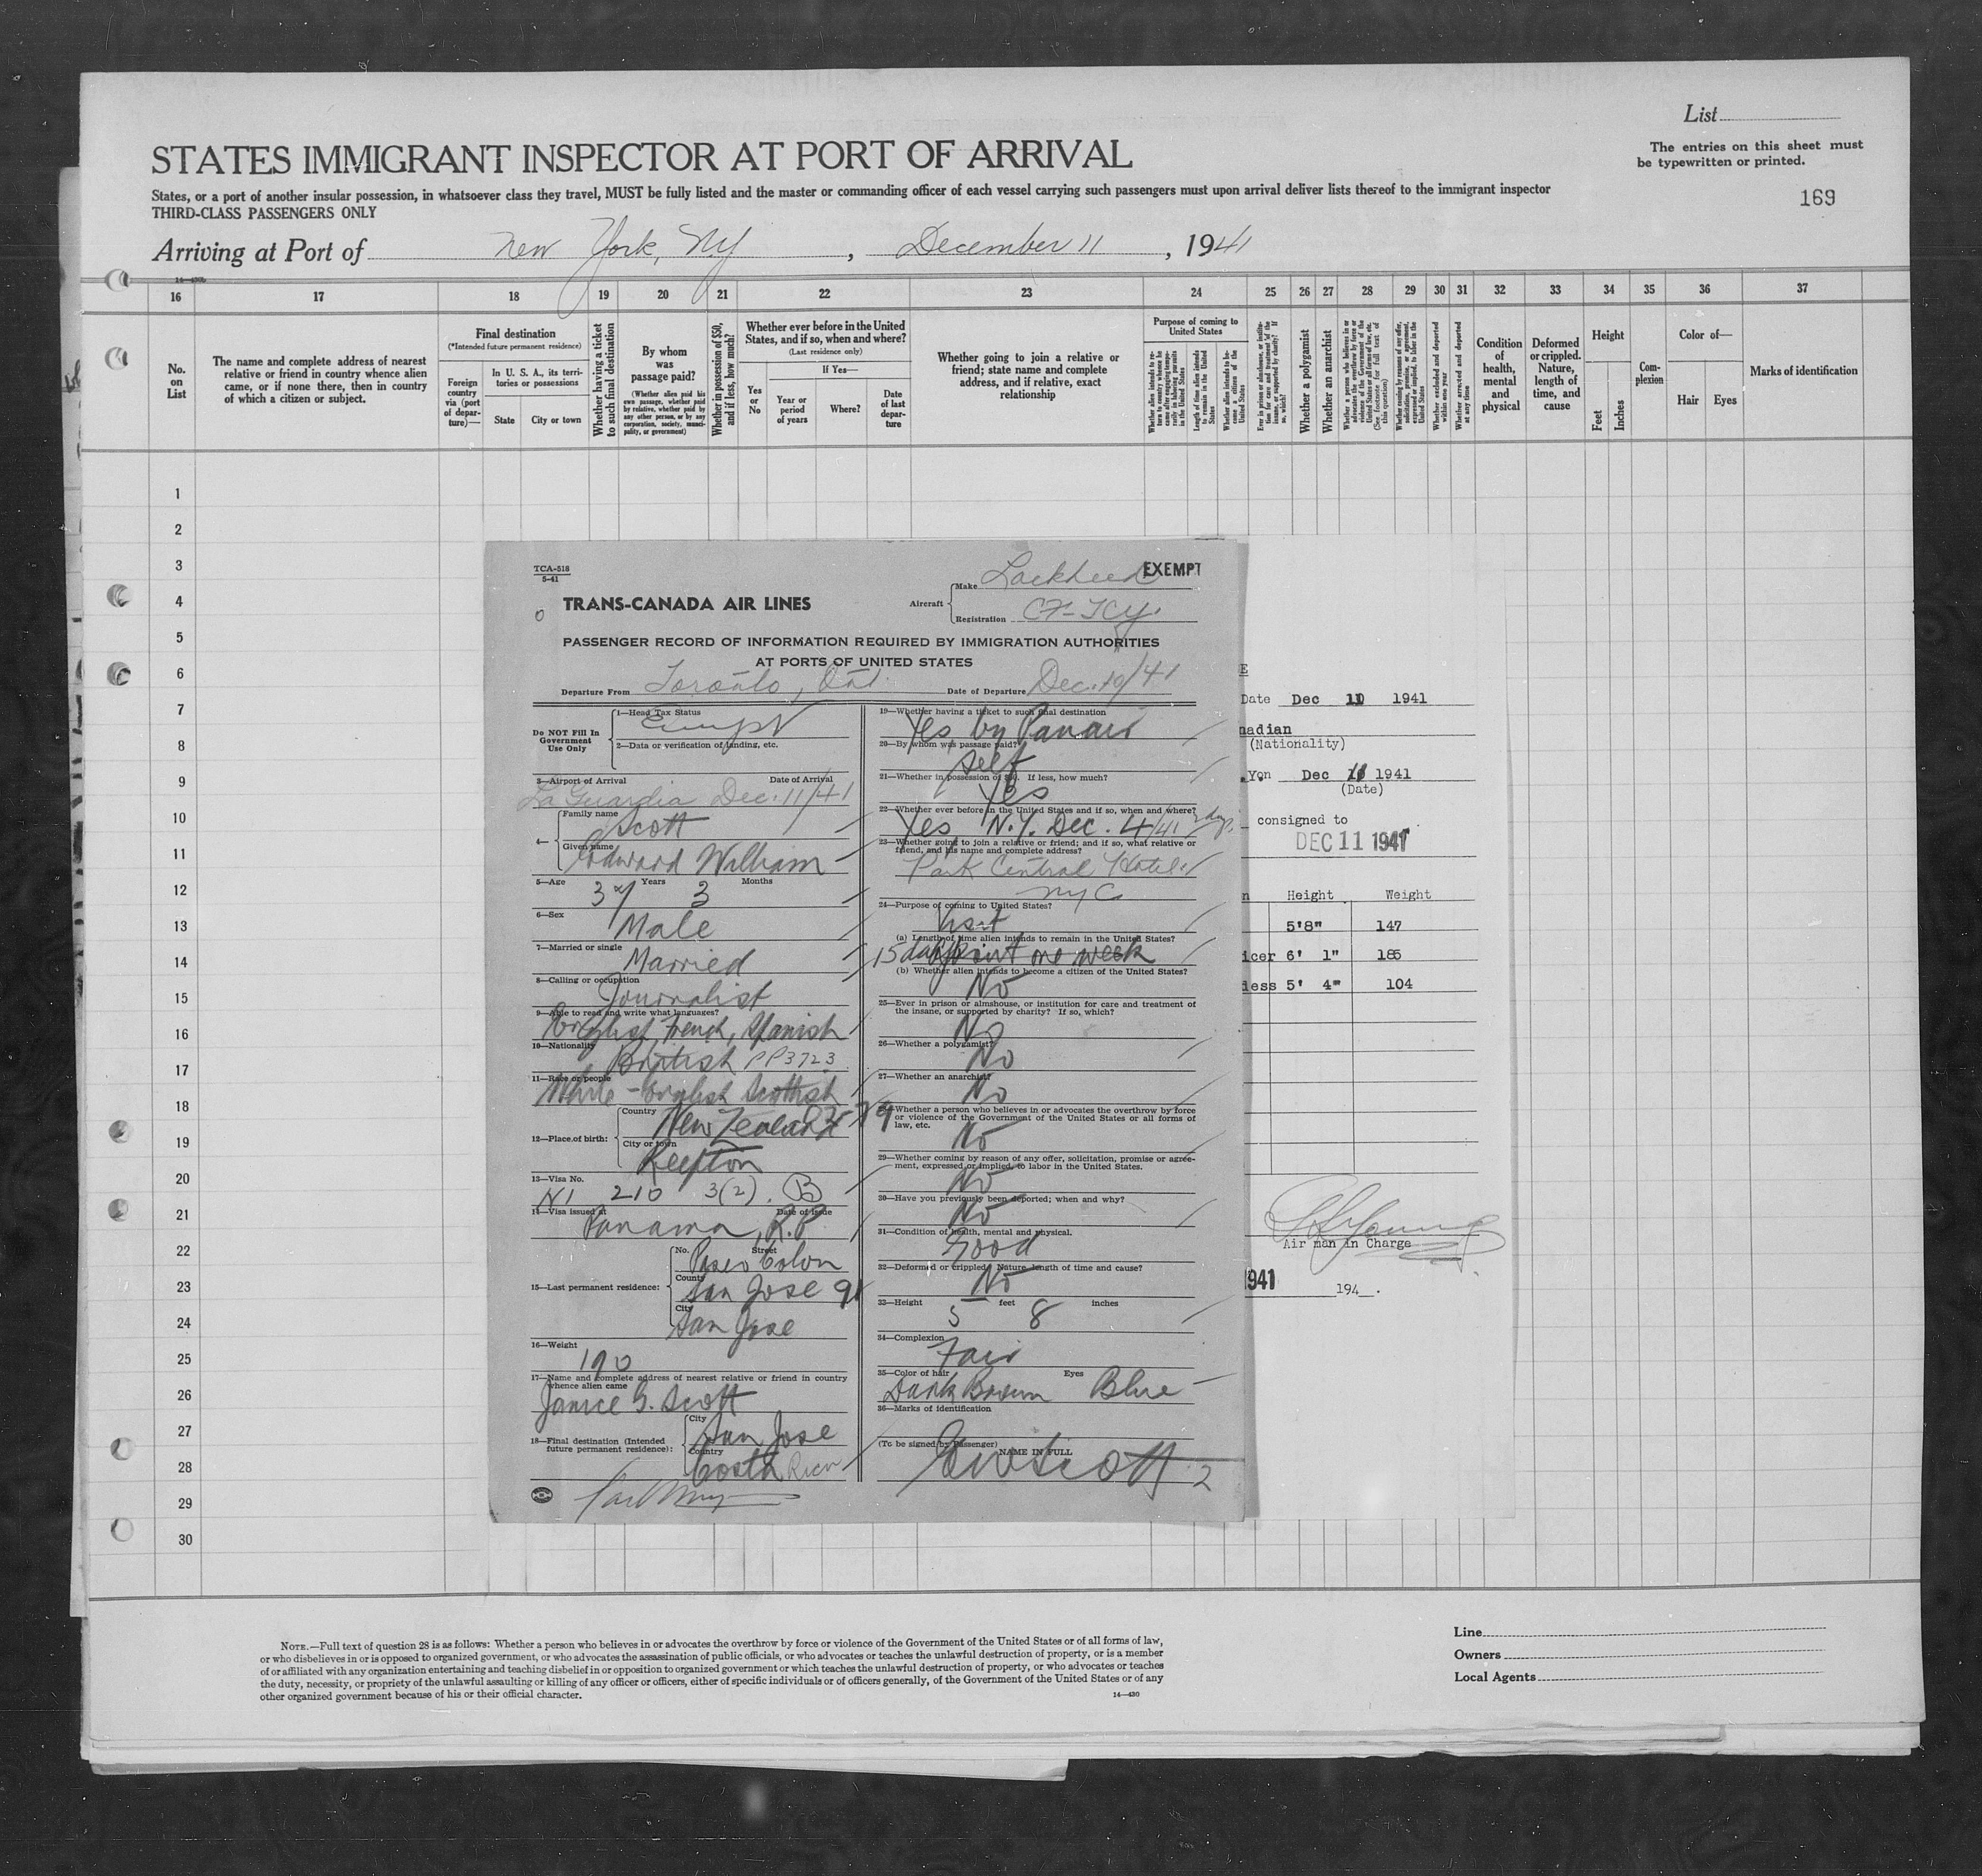 List
The entries on this sheet must
be typewritten or printed.
169
STATES IMMIGRANT INSPECTOR AT PORT OF ARRIVAL
States, or a port of another insular possession, in whatsoever class they travel, MUST be fully listed and the master or commanding officer of each vessel carrying such passengers must upon arrival deliver lists thereof to the immigrant inspector
THIRD-CLASS PASSENGERS ONLY
Arriving at Port of New York, NY, December 11, 1941
16 17 18 19 20 21 22 23 24 25 26 27 28 29 30 31 32 33 34 35 36 37
No. on List
The name and complete address of nearest
relative or friend in country whence alien
came, or if none there, then in country
of which a citizen or subject.
Final destination
(*Intended future permanent residence)
Foreign country via (port of departure)—
In U. S. A., its territories or possessions
State
City or town
Whether having a ticket to such final destination
By whom was passage paid?
(Whether alien paid his own passage, whether paid by relative, whether paid by any other person, or by any corporation, society, municipality, or government)
Whether in possession of $50, and if less, how much?
Whether ever before in the United
States, and if so, when and where?
(Last residence only)
Yes or No
If Yes—
Year or period of years
Where?
Date of last departure
Whether going to join a relative or
friend; state name and complete
address, and if relative, exact
relationship
Purpose of coming to
United States
Whether alien intends to return to country whence he came after engaging temporarily in laboring pursuits in the United States
Length of time alien intends to remain in the United States
Whether alien intends to become a citizen of the United States
Whether a polygamist
Whether an anarchist
Whether excluded and deported within one year
Whether arrested and deported at any time
Condition of health, mental and physical
Deformed or crippled. Nature, length of time, and cause
Height
Feet
Inches
Complexion
Color of—
Hair
Eyes
Marks of identification
1
2
3
4
5
6
7
8
9
10
11
12
13
14
15
16
17
18
19
20
21
22
23
24
25
26
27
28
29
30
TCA-518
5-41
EXEMPT
TRANS-CANADA AIR LINES
Aircraft
Make Lockheed
Registration CF-TCY.
PASSENGER RECORD OF INFORMATION REQUIRED BY IMMIGRATION AUTHORITIES
AT PORTS OF UNITED STATES
Departure From Toronto, Ont. Date of Departure Dec. 10/41
Do NOT Fill In
Government
Use Only
1—Head Tax Status
Exempt
2—Data or verification of landing, etc.
3—Airport of Arrival Date of Arrival
La Guardia Dec. 11/41
4—
Family name
Scott
Given name
Edward William
5—Age 37 Years 3 Months
6—Sex
Male
7—Married or single
Married
8—Calling or occupation
Journalist
9—Able to read and write what languages?
English, French, Spanish
10—Nationality
British PP3723
11—Race or people
White - English Scottish
12—Place of birth:
Country
New Zealand
City or town
Reefton
13—Visa No.
NI 210 3(2). B
14—Visa issued at Date of Issue
Panama, R.P
15—Last permanent residence:
No. Street
Paseo Colon
County
San Jose
City
San Jose
16—Weight
190
17—Name and complete address of nearest relative or friend in country
whence alien came
Janice G. Scott
18—Final destination (Intended
future permanent residence):
City
San Jose
Country
Costa Rica
19—Whether having a ticket to such final destination
Yes by Panair
20—By whom was passage paid?
Self
21—Whether in possession of $50. If less, how much?
Yes
22—Whether ever before in the United States and if so, when and where?
Yes N.Y. Dec. 4/41 2 days
23—Whether going to join a relative or friend; and if so, what relative or
friend, and his name and complete address?
Park Central Hotel
NYC
24—Purpose of coming to United States?
Visit
(a) Length of time alien intends to remain in the United States?
15 days about one week
(b) Whether alien intends to become a citizen of the United States?
No
25—Ever in prison or almshouse, or institution for care and treatment of
the insane, or supported by charity? If so, which?
No
26—Whether a polygamist?
No
27—Whether an anarchist?
No
28—Whether a person who believes in or advocates the overthrow by force
or violence of the Government of the United States or all forms of
law, etc.
No
29—Whether coming by reason of any offer, solicitation, promise or agree-
ment, expressed or implied, to labor in the United States.
No
30—Have you previously been deported; when and why?
No
31—Condition of health, mental and physical.
Good
32—Deformed or crippled. Nature, length of time and cause?
No
33—Height 5 feet 8 inches
34—Complexion
Fair
35—Color of hair Eyes
Dark Brown Blue
36—Marks of identification
(To be signed by Passenger)
NAME IN FULL
EW Scott 2
Date Dec 11 1941
nadian
(Nationality)
Yon Dec 11 1941
(Date)
consigned to
DEC 11 1941
Height Weight
5'8" 147
icer 6' 1" 185
dess 5' 4" 104
Air man in Charge
1941
194 .
NOTE.—Full text of question 28 is as follows: Whether a person who believes in or advocates the overthrow by force or violence of the Government of the United States or of all forms of law,
or who disbelieves in or is opposed to organized government, or who advocates the assassination of public officials, or who advocates or teaches the unlawful destruction of property, or is a member
of or affiliated with any organization entertaining and teaching disbelief in or opposition to organized government or which teaches the unlawful destruction of property, or who advocates or teaches
the duty, necessity, or propriety of the unlawful assaulting or killing of any officer or officers, either of specific individuals or of officers generally, of the Government of the United States or of any
other organized government because of his or their official character.
14—430
Line
Owners
Local Agents